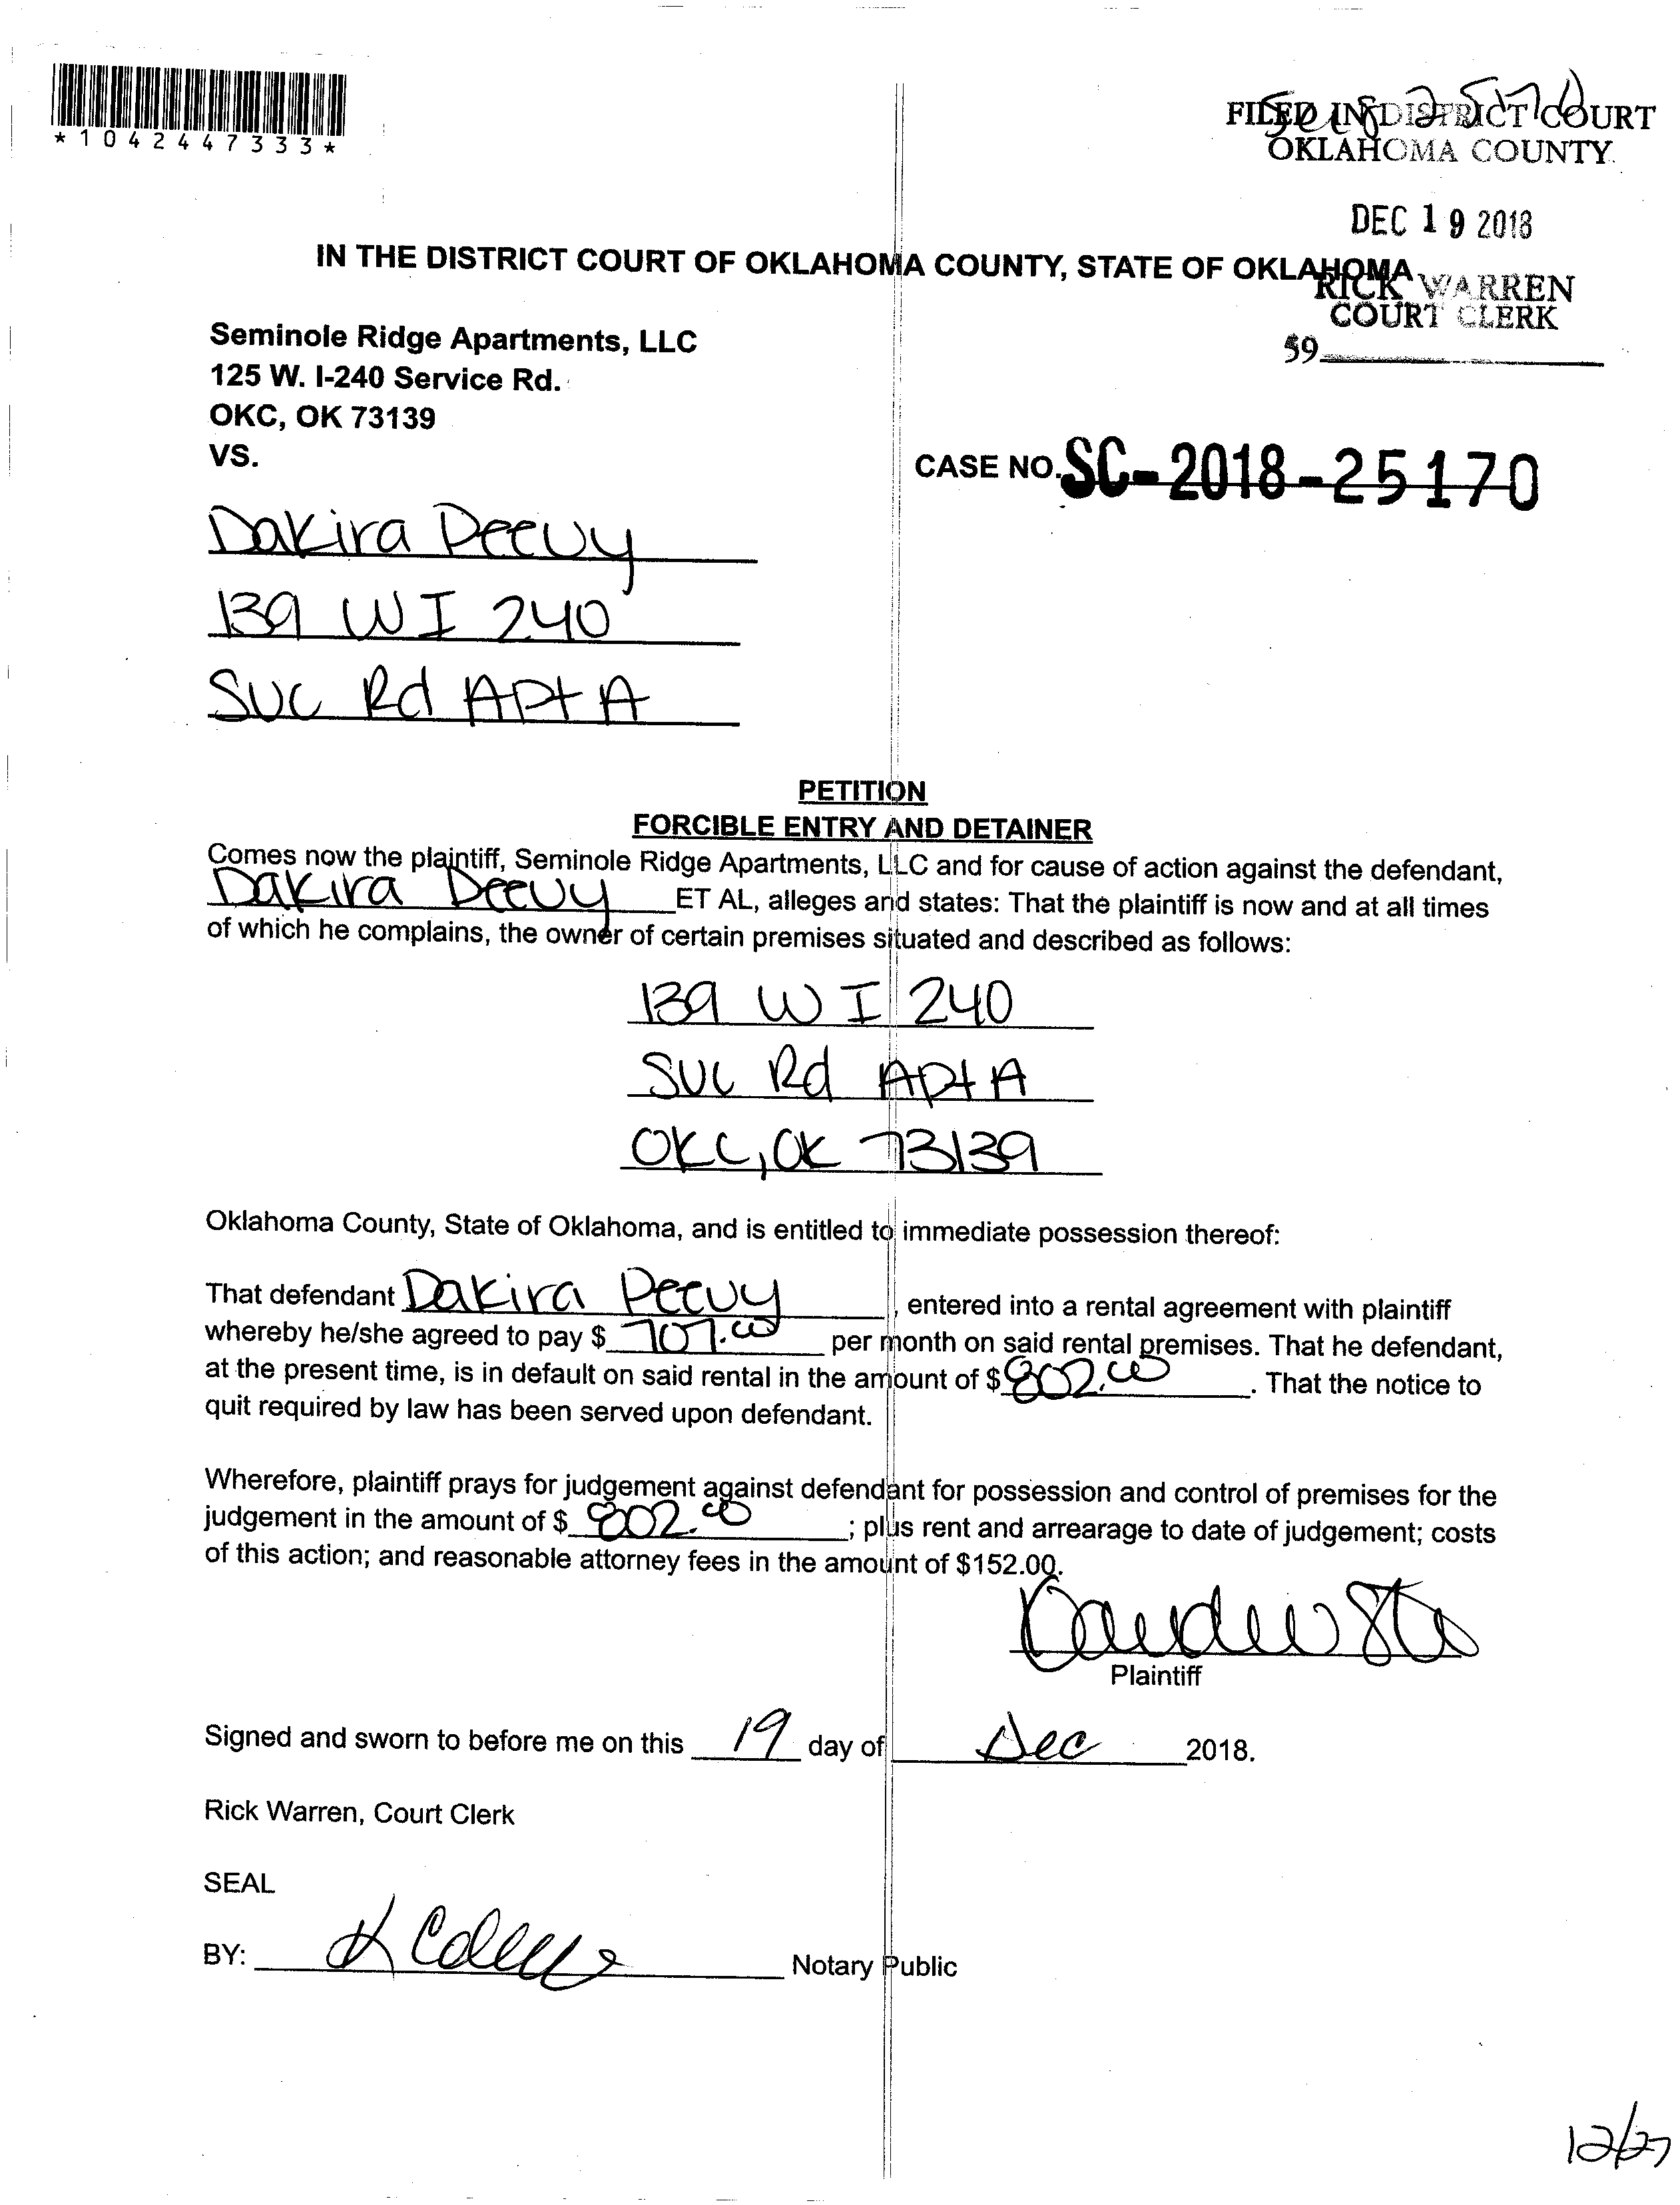 *1042447333*
FILED IN DISTRICT COURT
OKLAHOMA COUNTY
DEC 19 2018
IN THE DISTRICT COURT OF OKLAHOMA COUNTY, STATE OF OKLAHOMA
RICK WARREN
COURT CLERK
59
Seminole Ridge Apartments, LLC
125 W. I-240 Service Rd.
OKC, OK 73139
VS.
CASE NO. SC-2018-25170
Dakira Peevy
139 W I 240
SVC Rd APt A
PETITION
FORCIBLE ENTRY AND DETAINER
Comes now the plaintiff, Seminole Ridge Apartments, LLC and for cause of action against the defendant,
Dakira Peevy ET AL, alleges and states: That the plaintiff is now and at all times
of which he complains, the owner of certain premises situated and described as follows:
139 W I 240
SVC Rd APt A
OKC, OK 73139
Oklahoma County, State of Oklahoma, and is entitled to immediate possession thereof:
That defendant Dakira Peevy, entered into a rental agreement with plaintiff
whereby he/she agreed to pay $ 707.00 per month on said rental premises. That he defendant,
at the present time, is in default on said rental in the amount of $ 802.00. That the notice to
quit required by law has been served upon defendant.
Wherefore, plaintiff prays for judgement against defendant for possession and control of premises for the
judgement in the amount of $ 802.00; plus rent and arrearage to date of judgement; costs
of this action; and reasonable attorney fees in the amount of $152.00.
Plaintiff
Signed and sworn to before me on this 19 day of Dec 2018.
Rick Warren, Court Clerk
SEAL
BY: Notary Public
12/27